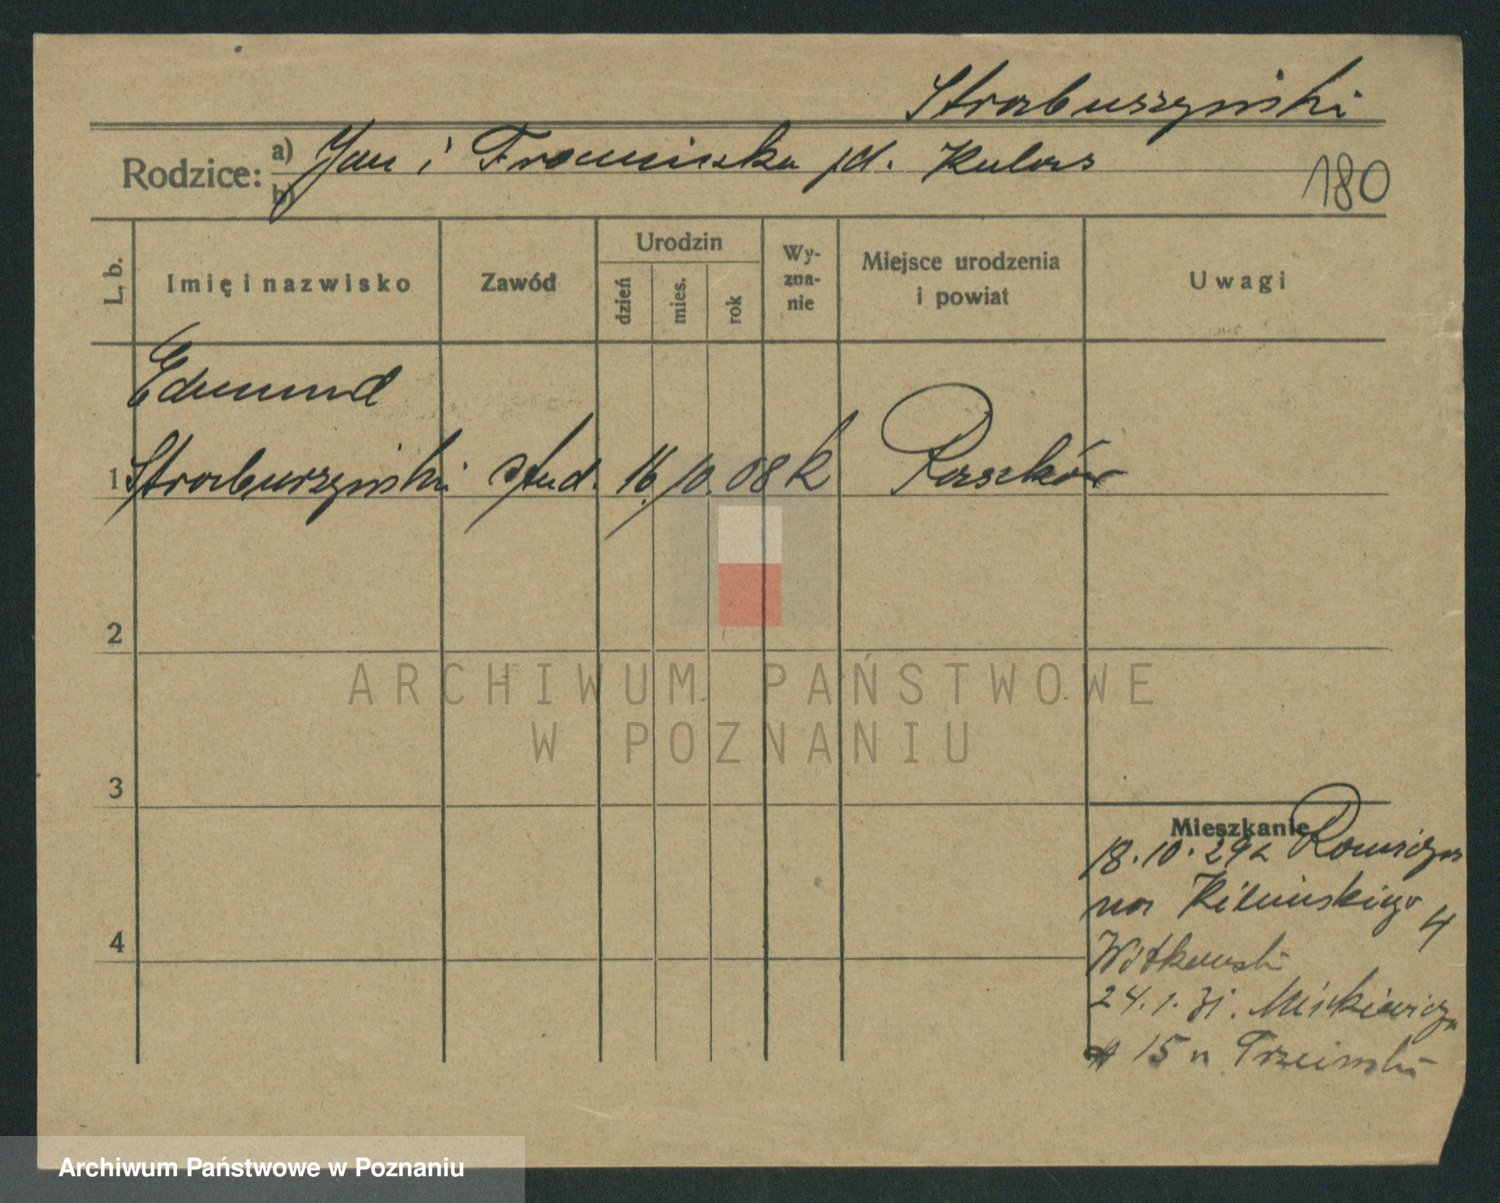 Straburzyński
Rodzice: a) Jan i Franciszka
b)
180
L. b.
Imię i nazwisko
Zawód
Urodzin
dzień
mies.
rok
Wy-
zna-
nie
Miejsce urodzenia
i powiat
Uwagi
Edmund
1 Straburzyński stud. 16. 10. 08 k
2
3
4
Mieszkanie
18.10.29 z
na Kilińskiego 4
Witkowski
24.1.31. Mickiewicza
15
ARCHIWUM PAŃSTWOWE
W POZNANIU
Archiwum Państwowe w Poznaniu